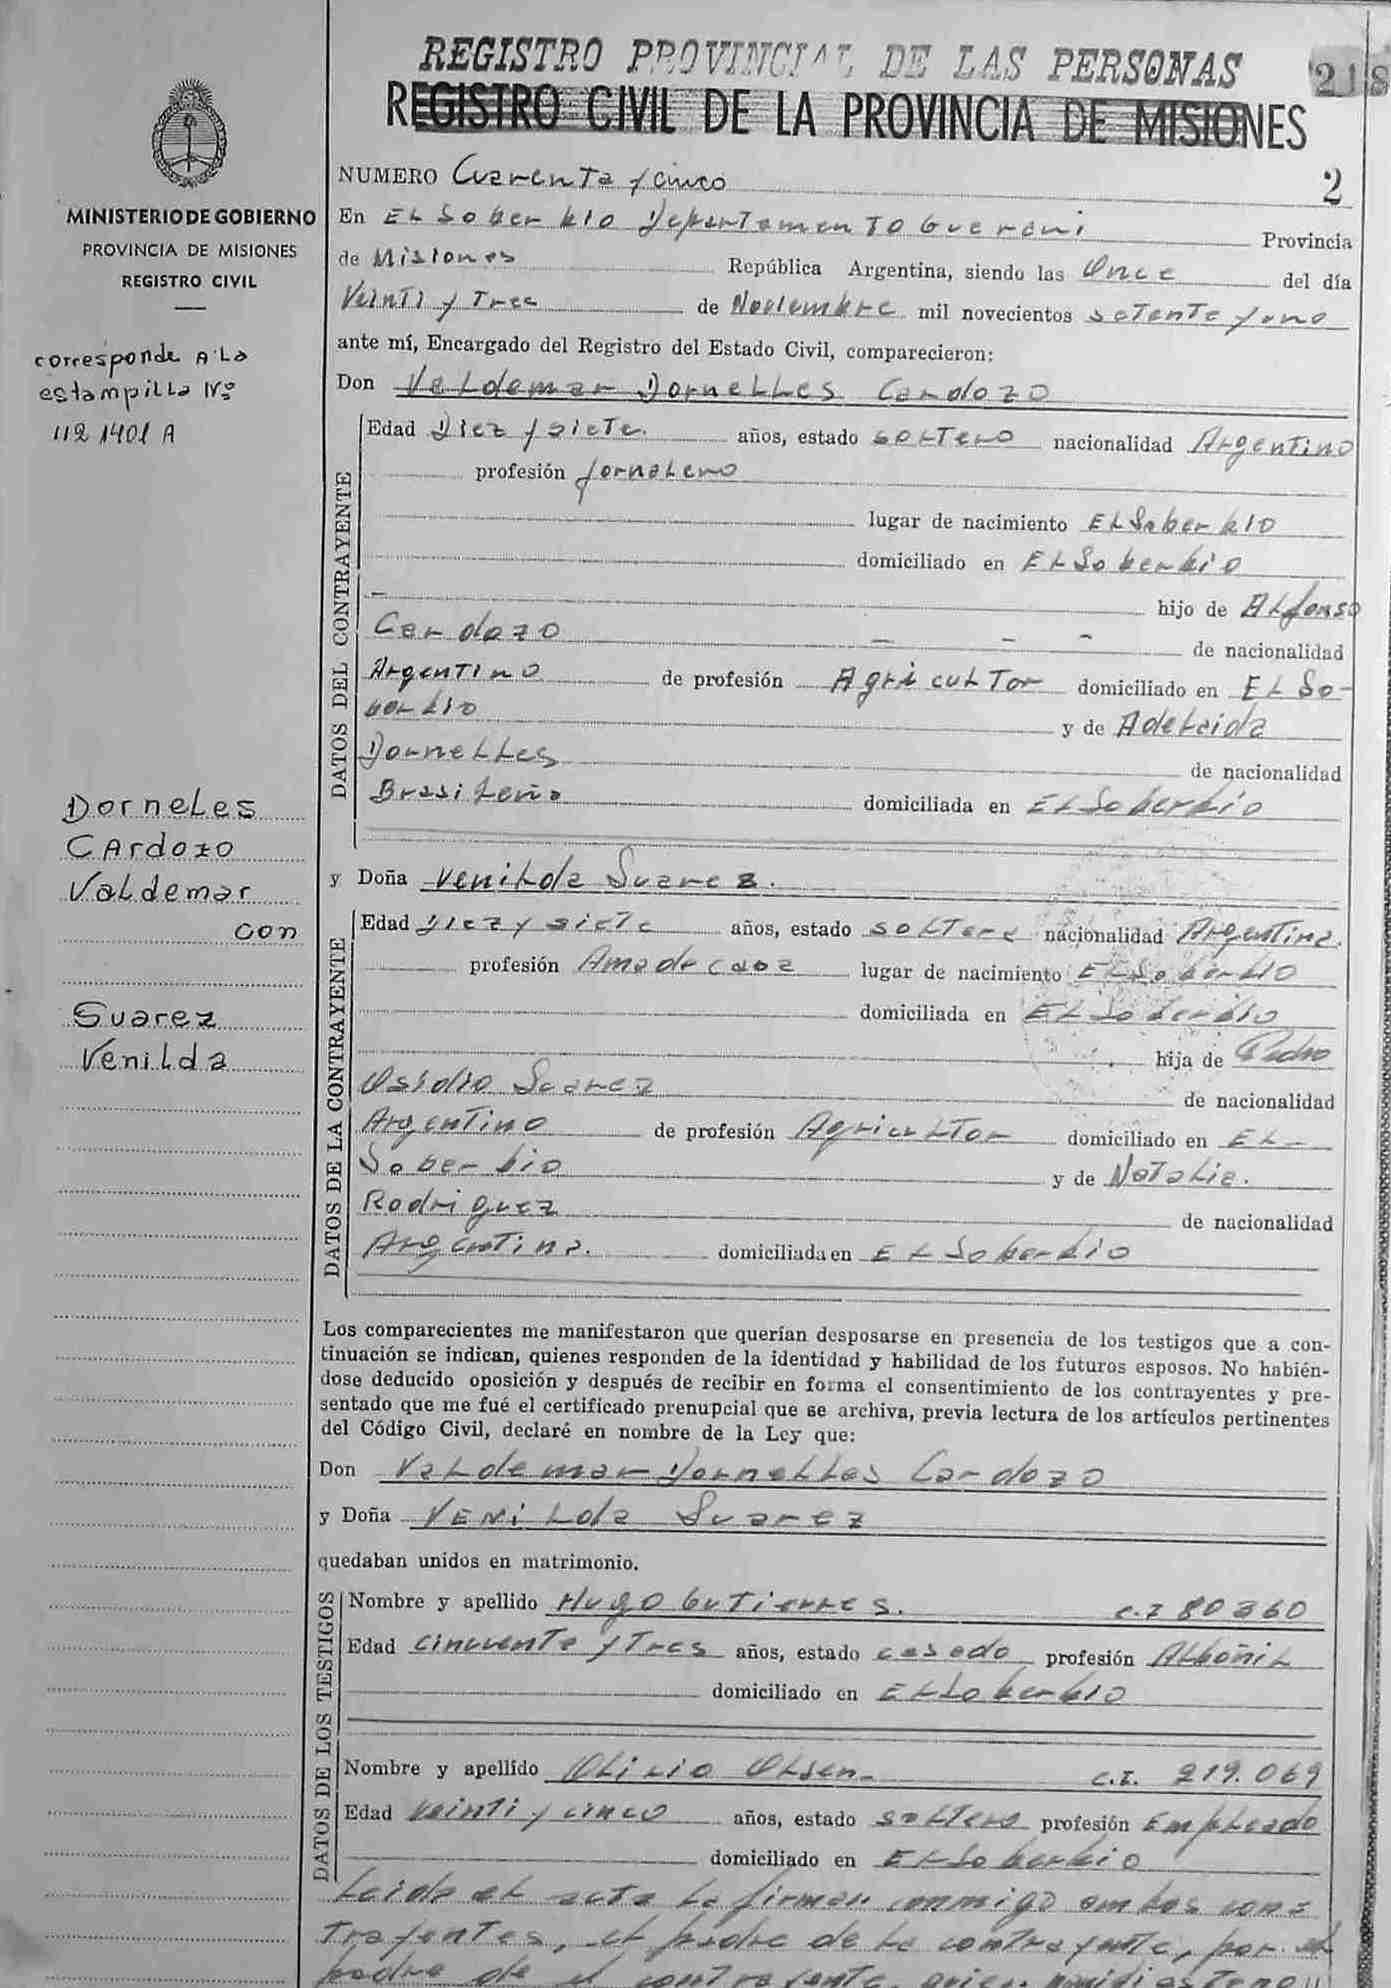 REGISTRO PROVINCIAL DE LAS PERSONAS
218
REGISTRO CIVIL DE LA PROVINCIA DE MISIONES
2
MINISTERIO DE GOBIERNO
PROVINCIA DE MISIONES
REGISTRO CIVIL
corresponde A La
estampilla Nº
112 1401 A
Dorneles
Cardozo
Valdemar
con
Suarez
Venilda
NUMERO Cuarenta y cinco
En El Soberbio Departamento Guarani Provincia
de Misiones República Argentina, siendo las Once del día
Veinti y Tres de Noviembre mil novecientos setenta y uno
ante mí, Encargado del Registro del Estado Civil, comparecieron:
Don Valdemar Dornelles Cardozo
DATOS DEL CONTRAYENTE
Edad Diez y siete años, estado soltero nacionalidad Argentino
profesión Jornalero
lugar de nacimiento El Soberbio
domiciliado en El Soberbio
hijo de Alfonso
Cardozo de nacionalidad
Argentino de profesión Agricultor domiciliado en El So-
berbio y de Adelaida
Dornelles de nacionalidad
Brasileña domiciliada en El Soberbio
y Doña Venilda Suarez.
DATOS DE LA CONTRAYENTE
Edad Diez y siete años, estado soltera nacionalidad Argentina.
profesión Ama de casa lugar de nacimiento El Soberbio
domiciliada en El Soberbio
hija de Pedro
Osidio Suarez de nacionalidad
Argentino de profesión Agricultor domiciliado en El-
Soberbio y de Natalia.
Rodriguez de nacionalidad
Argentina. domiciliada en El Soberbio
Los comparecientes me manifestaron que querían desposarse en presencia de los testigos que a con-
tinuación se indican, quienes responden de la identidad y habilidad de los futuros esposos. No habién-
dose deducido oposición y después de recibir en forma el consentimiento de los contrayentes y pre-
sentado que me fué el certificado prenupcial que se archiva, previa lectura de los artículos pertinentes
del Código Civil, declaré en nombre de la Ley que:
Don Valdemar Dornelles Cardozo
y Doña Venilda Suarez
quedaban unidos en matrimonio.
DATOS DE LOS TESTIGOS
Nombre y apellido Hugo Gutierres. C.I 80360
Edad cincuenta y Tres años, estado casado profesión Albañil
domiciliado en El Soberbio
Nombre y apellido Olsen. C.I. 219.069
Edad veinti y cinco años, estado soltero profesión Empleado
domiciliado en El Soberbio
Leida el acta la firman conmigo ambos con=
trayentes, el padre de la contrayente, por el
padre de